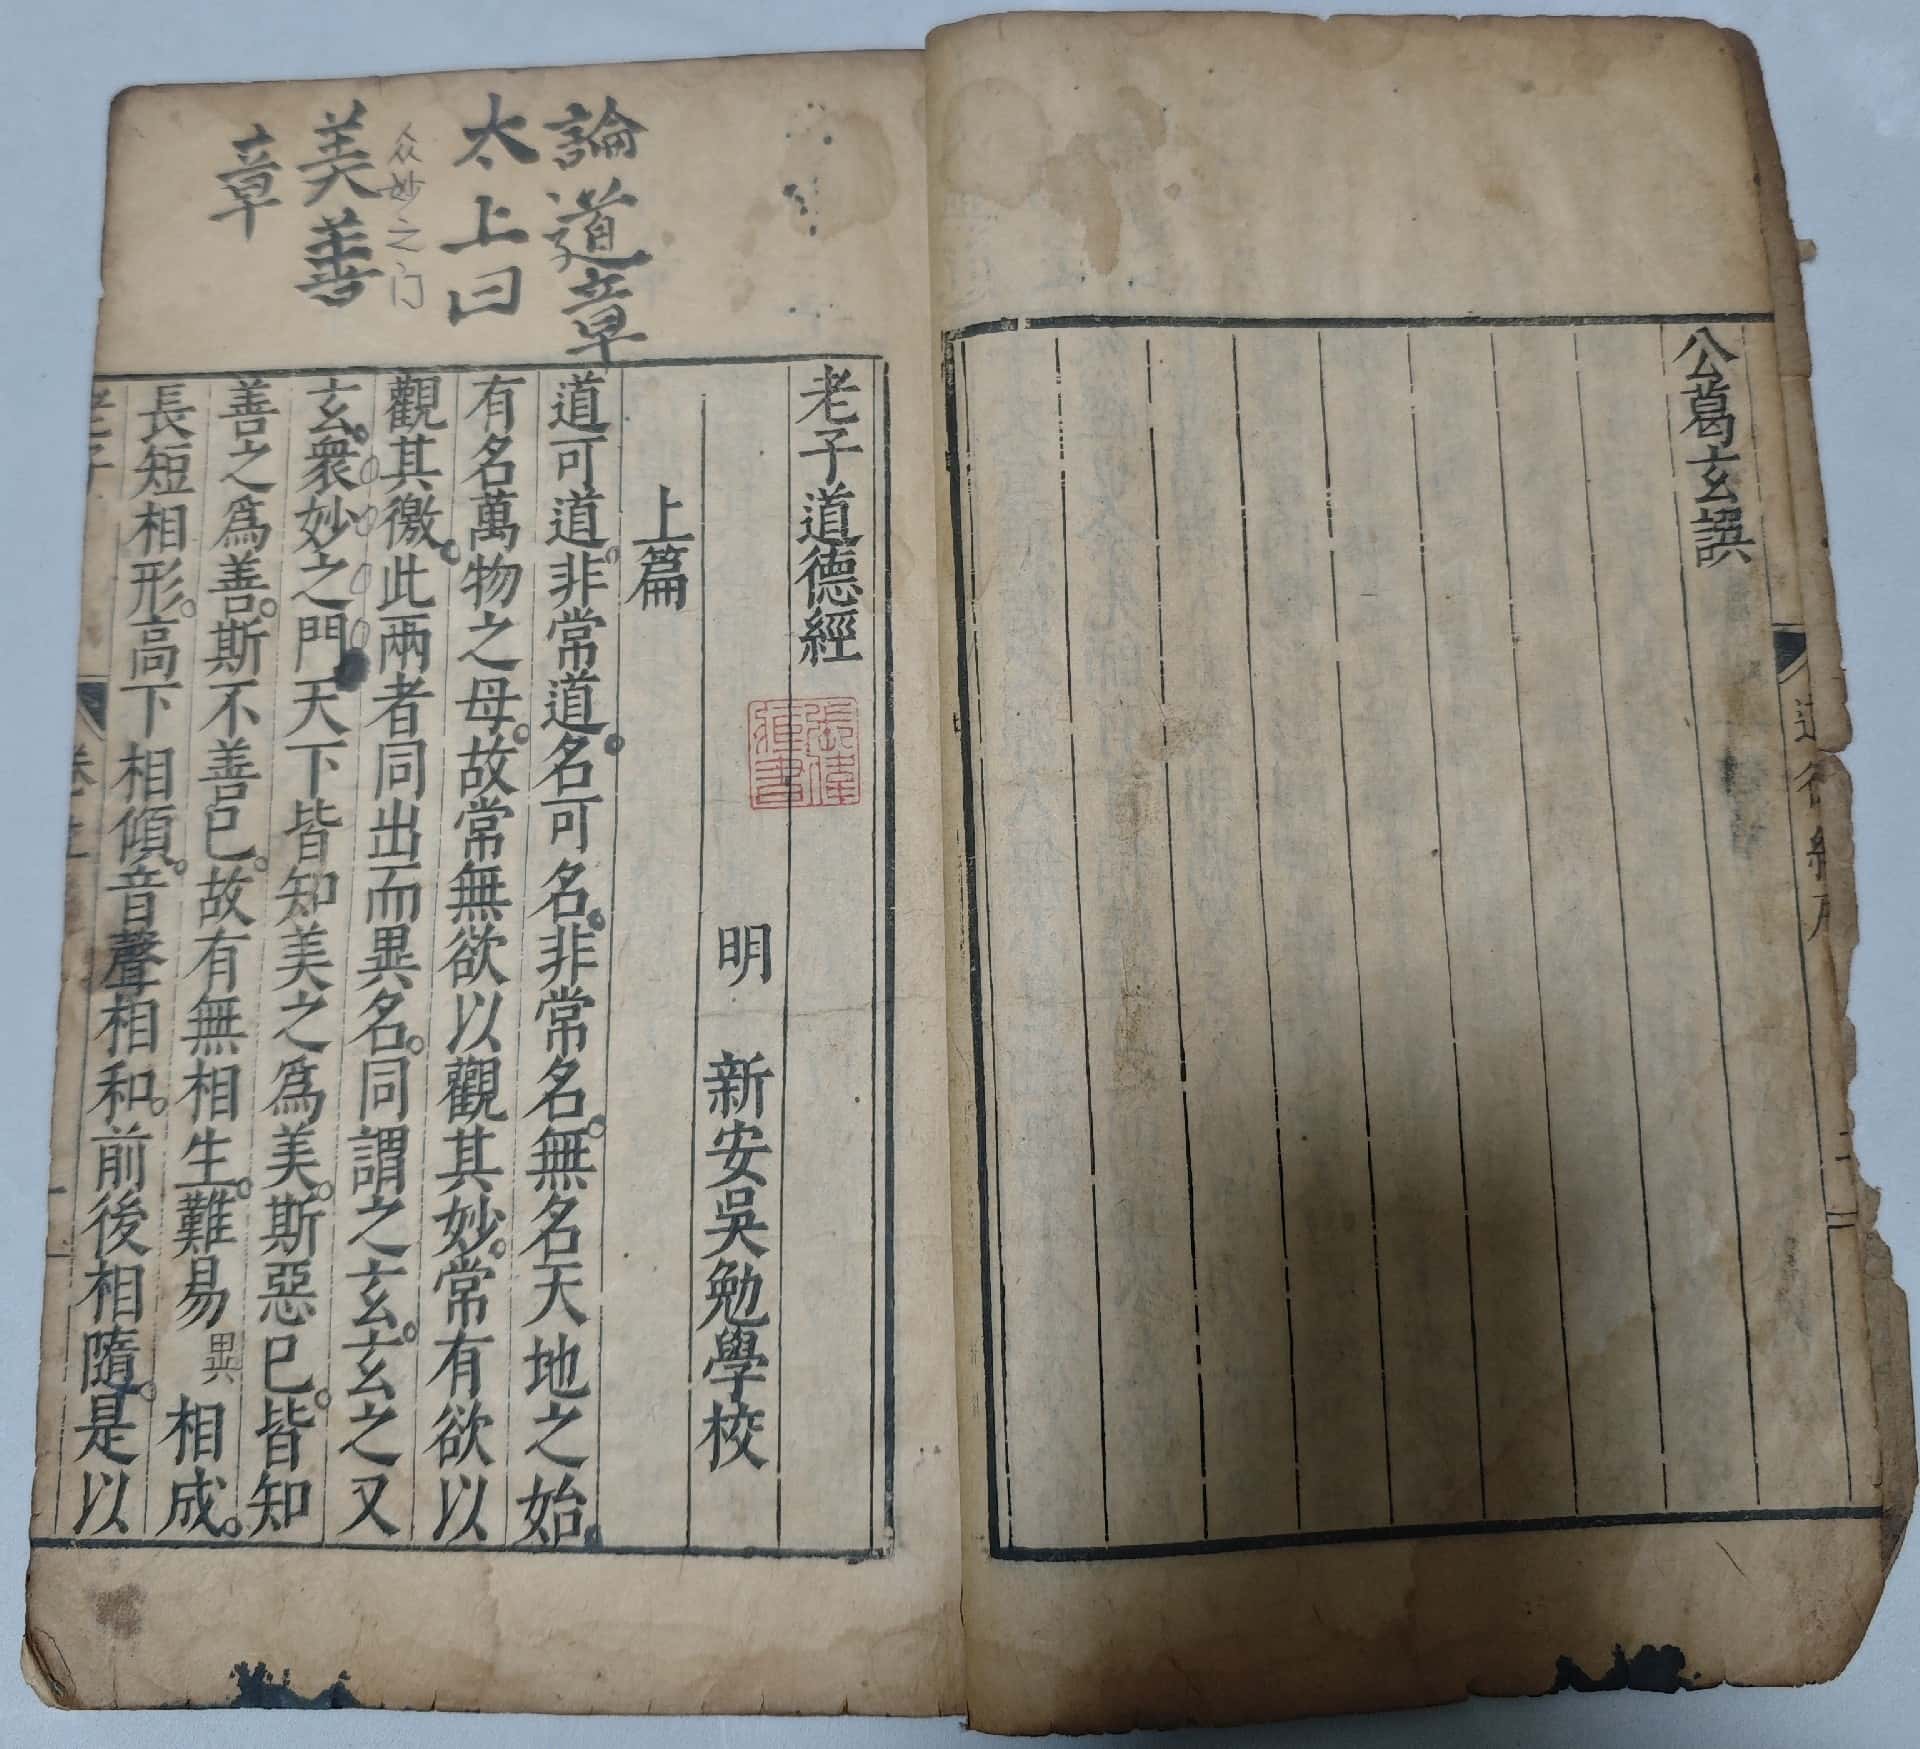 公葛玄譔
道德經序
論道章
太上曰
众妙之门
美善
章
老子道德經
明 新安吳勉學校
上篇
道可道非常道名可名非常名無名天地之始
有名萬物之母故常無欲以觀其妙常有欲以
觀其徼此兩者同出而異名同謂之玄玄之又
玄衆妙之門天下皆知美之爲美斯惡已皆知
善之爲善斯不善已故有無相生難易異相成
長短相形高下相傾音聲相和前後相隨是以
老子
卷上